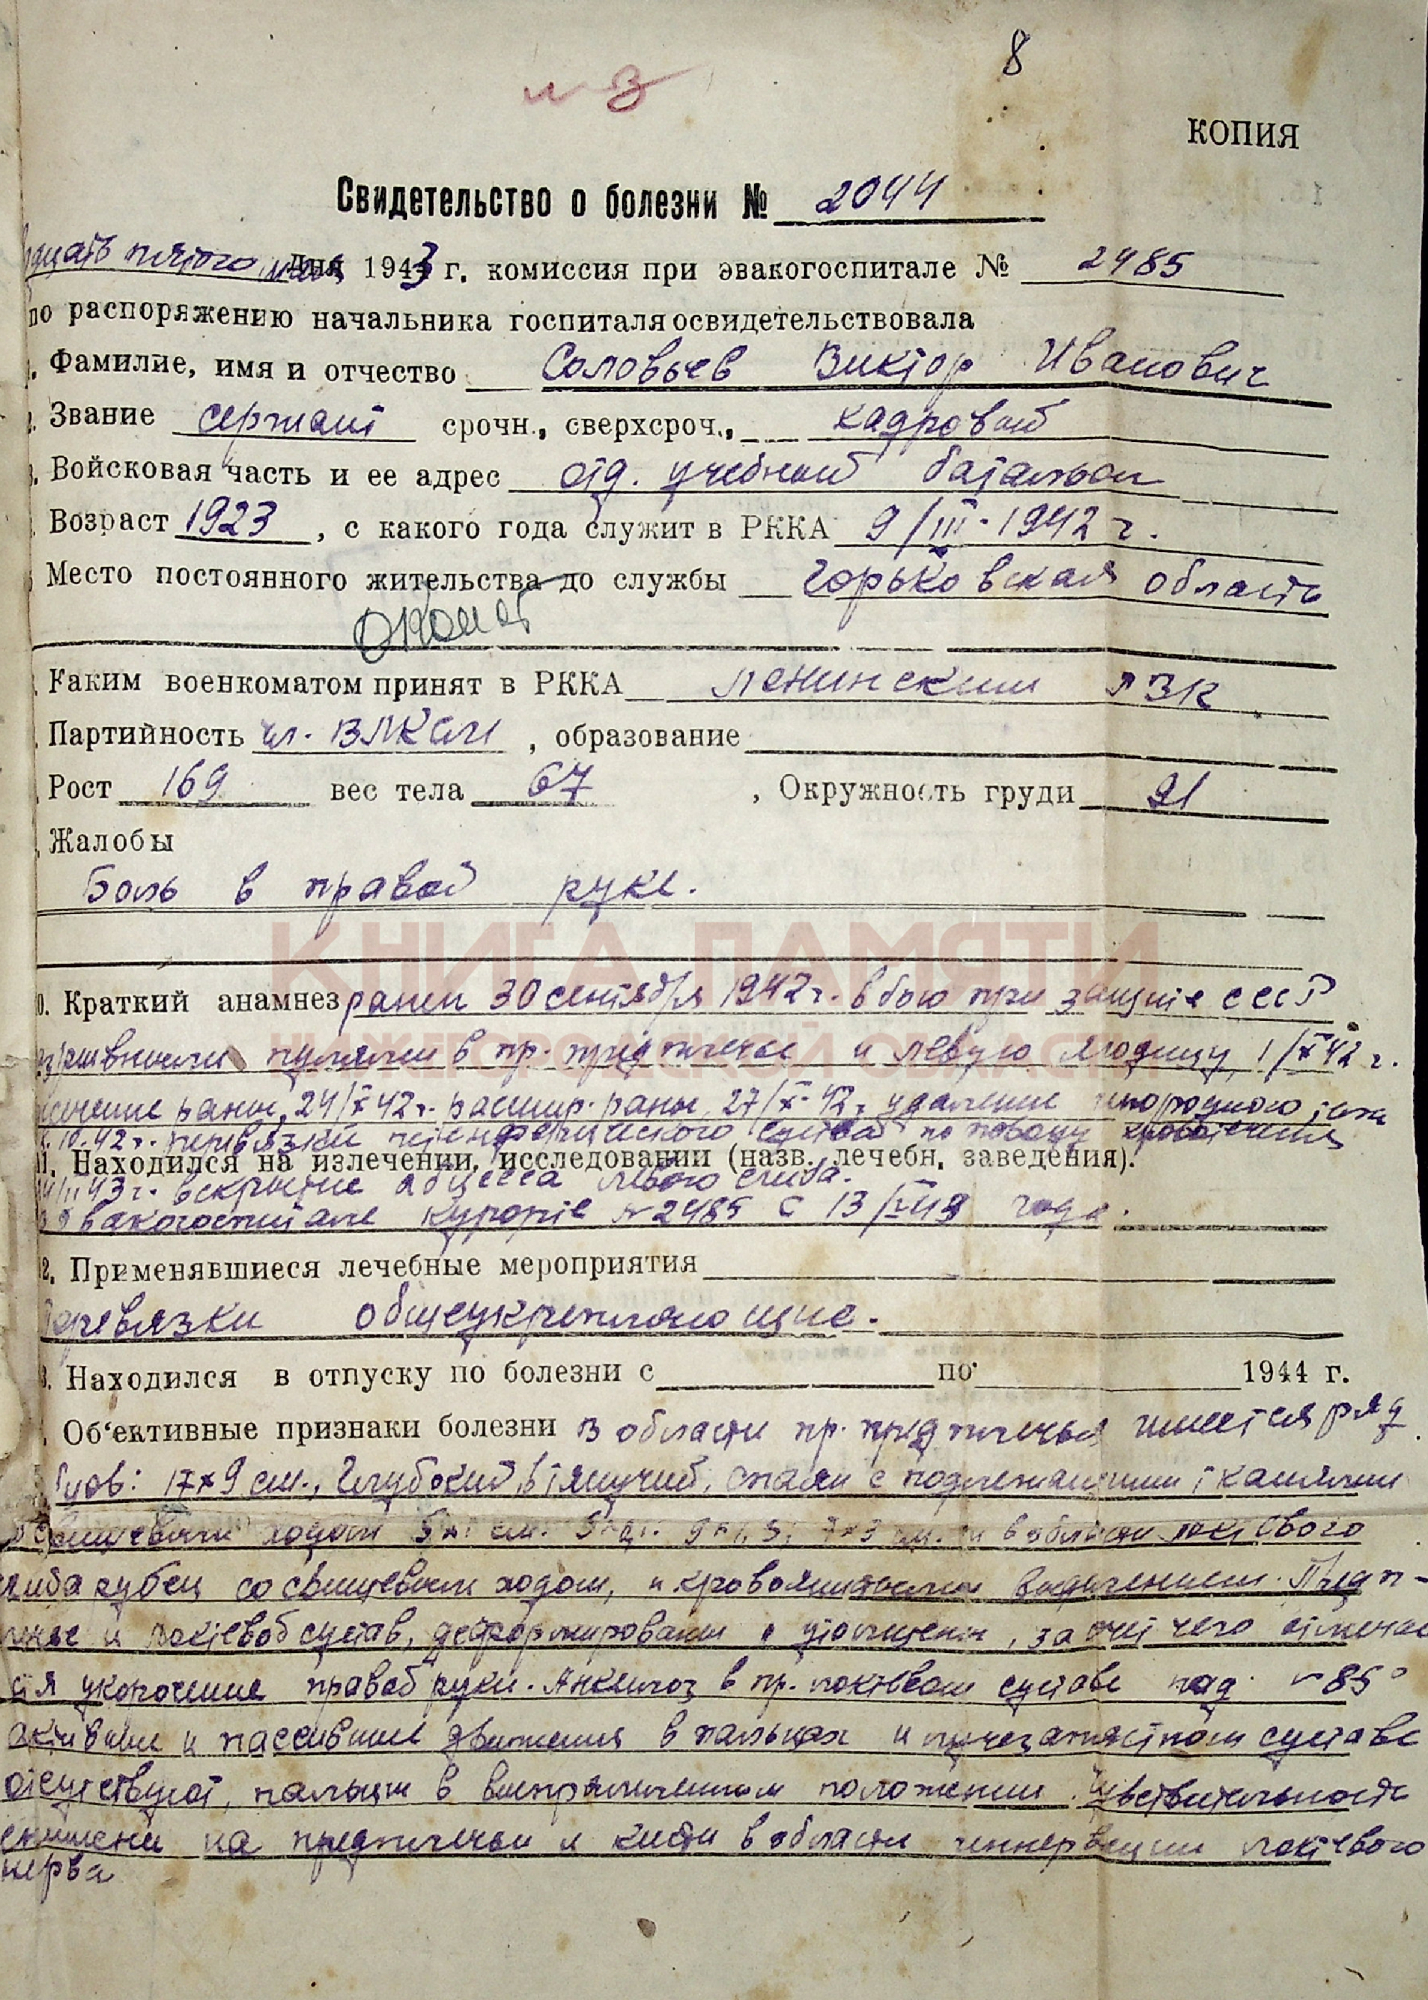 8
КОПИЯ
Свидетельство о болезни № 2044
пятого мая Дня 1943 г. комиссия при эвакогоспитале № 2485
по распоряжению начальника госпиталя освидетельствовала
Фамилие, имя и отчество Соловьев Виктор Иванович
Звание сержант срочн., сверхсроч., кадровый
Войсковая часть и ее адрес отд. учебный батальон
Возраст 1923, с какого года служит в РККА 9/III-1942 г.
Место постоянного жительства до службы Горьковская область
Каким военкоматом принят в РККА Ленинским РВК
Партийность чл. ВЛКСМ, образование
Рост 169 вес тела 67, Окружность груди 91
Жалобы
Боль в правой руке.
КНИГА ПАМЯТИ
НИЖЕГОРОДСКОЙ ОБЛАСТИ
0. Краткий анамнез ранен 30 сентября 1942 г. в бою при защите СССР
разрывными пулями в пр. предплечье и левую ягодицу, 1/X 42 г.
рассечение раны, 24/X 42 г. расшир. раны, 27/X-42 г. удаление инородного тела
42 г. перевязки периферического сустава по поводу кровотечения
11. Находился на излечении, исследовании (назв. лечебн. заведения).
43 г. вскрытие абцесса левого
В эвакогоспитале курорте № 2485 с 13/ 43 года.
12. Применявшиеся лечебные мероприятия
Перевязки общеукрепляющие.
3. Находился в отпуску по болезни с по 1944 г.
Об'ективные признаки болезни В области пр. предплечья имеется ряд
рубцов: 17×9 см., глубокий, втянутый, спаян с подлежащими тканями
со свищевым ходом 5×1 см. 7×3 см. и в области локтевого
сгиба рубец со свищевым ходом, и кровоянистым выделением. Предп-
лечье и локтевой сустав, деформированы и утолщены, за счет чего отмечает-
ся укорочение правой руки. Анкилоз в пр. локтевом суставе под 85°
активные и пассивные движения в пальцах и лучезапястном суставе
отсутствуют, пальцы в выпрямленном положении. Чувствительность
снижена на предплечьи и кисти в области иннервации локтевого
нерва